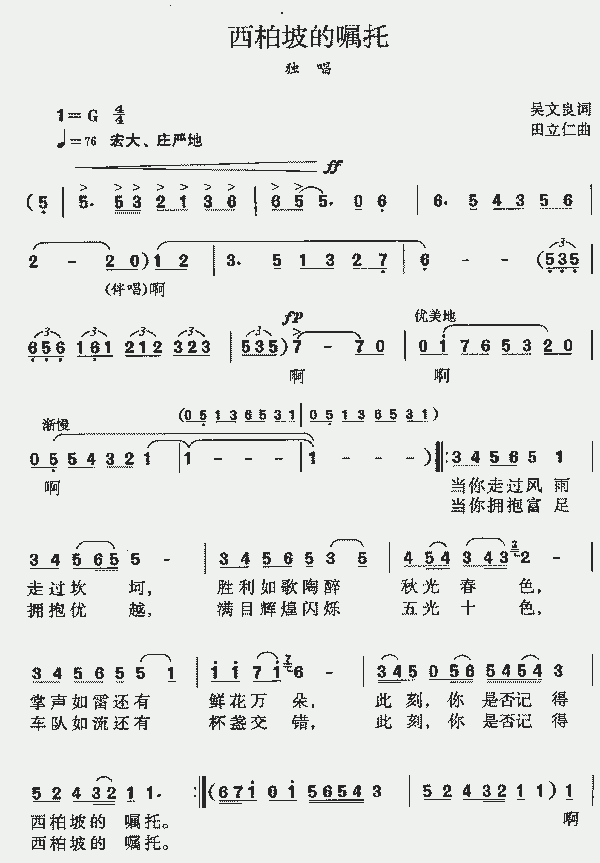 西柏坡的嘱托
独 唱
1=G 4/4
吴文良词
♩=76 宏大、庄严地
田立仁曲
ff
(5 | 5. 5 3 2 1 3 6 | 6 5 5. 0 6 | 6. 5 4 3 5 6 |
2 - 2 0) 1 2 | 3. 5 1 3 2 7 | 6 - - (5 3 5 |
(伴唱)啊
fp 优美地
6 5 6 1 6 1 2 1 2 3 2 3 | 5 3 5) 7 - 7 0 | 0 1 7 6 5 3 2 0 |
啊 啊
渐慢 (0 5 1 3 6 5 3 1 | 0 5 1 3 6 5 3 1)
0 5 5 4 3 2 1 | 1 - - - | 1 - - -) ‖: 3 4 5 6 5 1 |
啊 当你走过风 雨
当你拥抱富 足
3 4 5 6 5 5 - | 3 4 5 6 5 3 5 | 4 5 4 3 4 3 2 - |
走过坎 坷, 胜利如歌陶醉 秋光 春 色,
拥抱优 越, 满目辉煌闪烁 五光 十 色,
3 4 5 6 5 5 1 | 1 1 7 1 6 - | 3 4 5 0 5 6 5 4 5 4 3 |
掌声如雷还有 鲜花万 朵, 此 刻, 你 是否记 得
车队如流还有 杯盏交 错, 此 刻, 你 是否记 得
5 2 4 3 2 1 1. :‖ (6 7 1 0 1 5 6 5 4 3 | 5 2 4 3 2 1 1) 1 |
西柏坡的 嘱托。 啊
西柏坡的 嘱托。